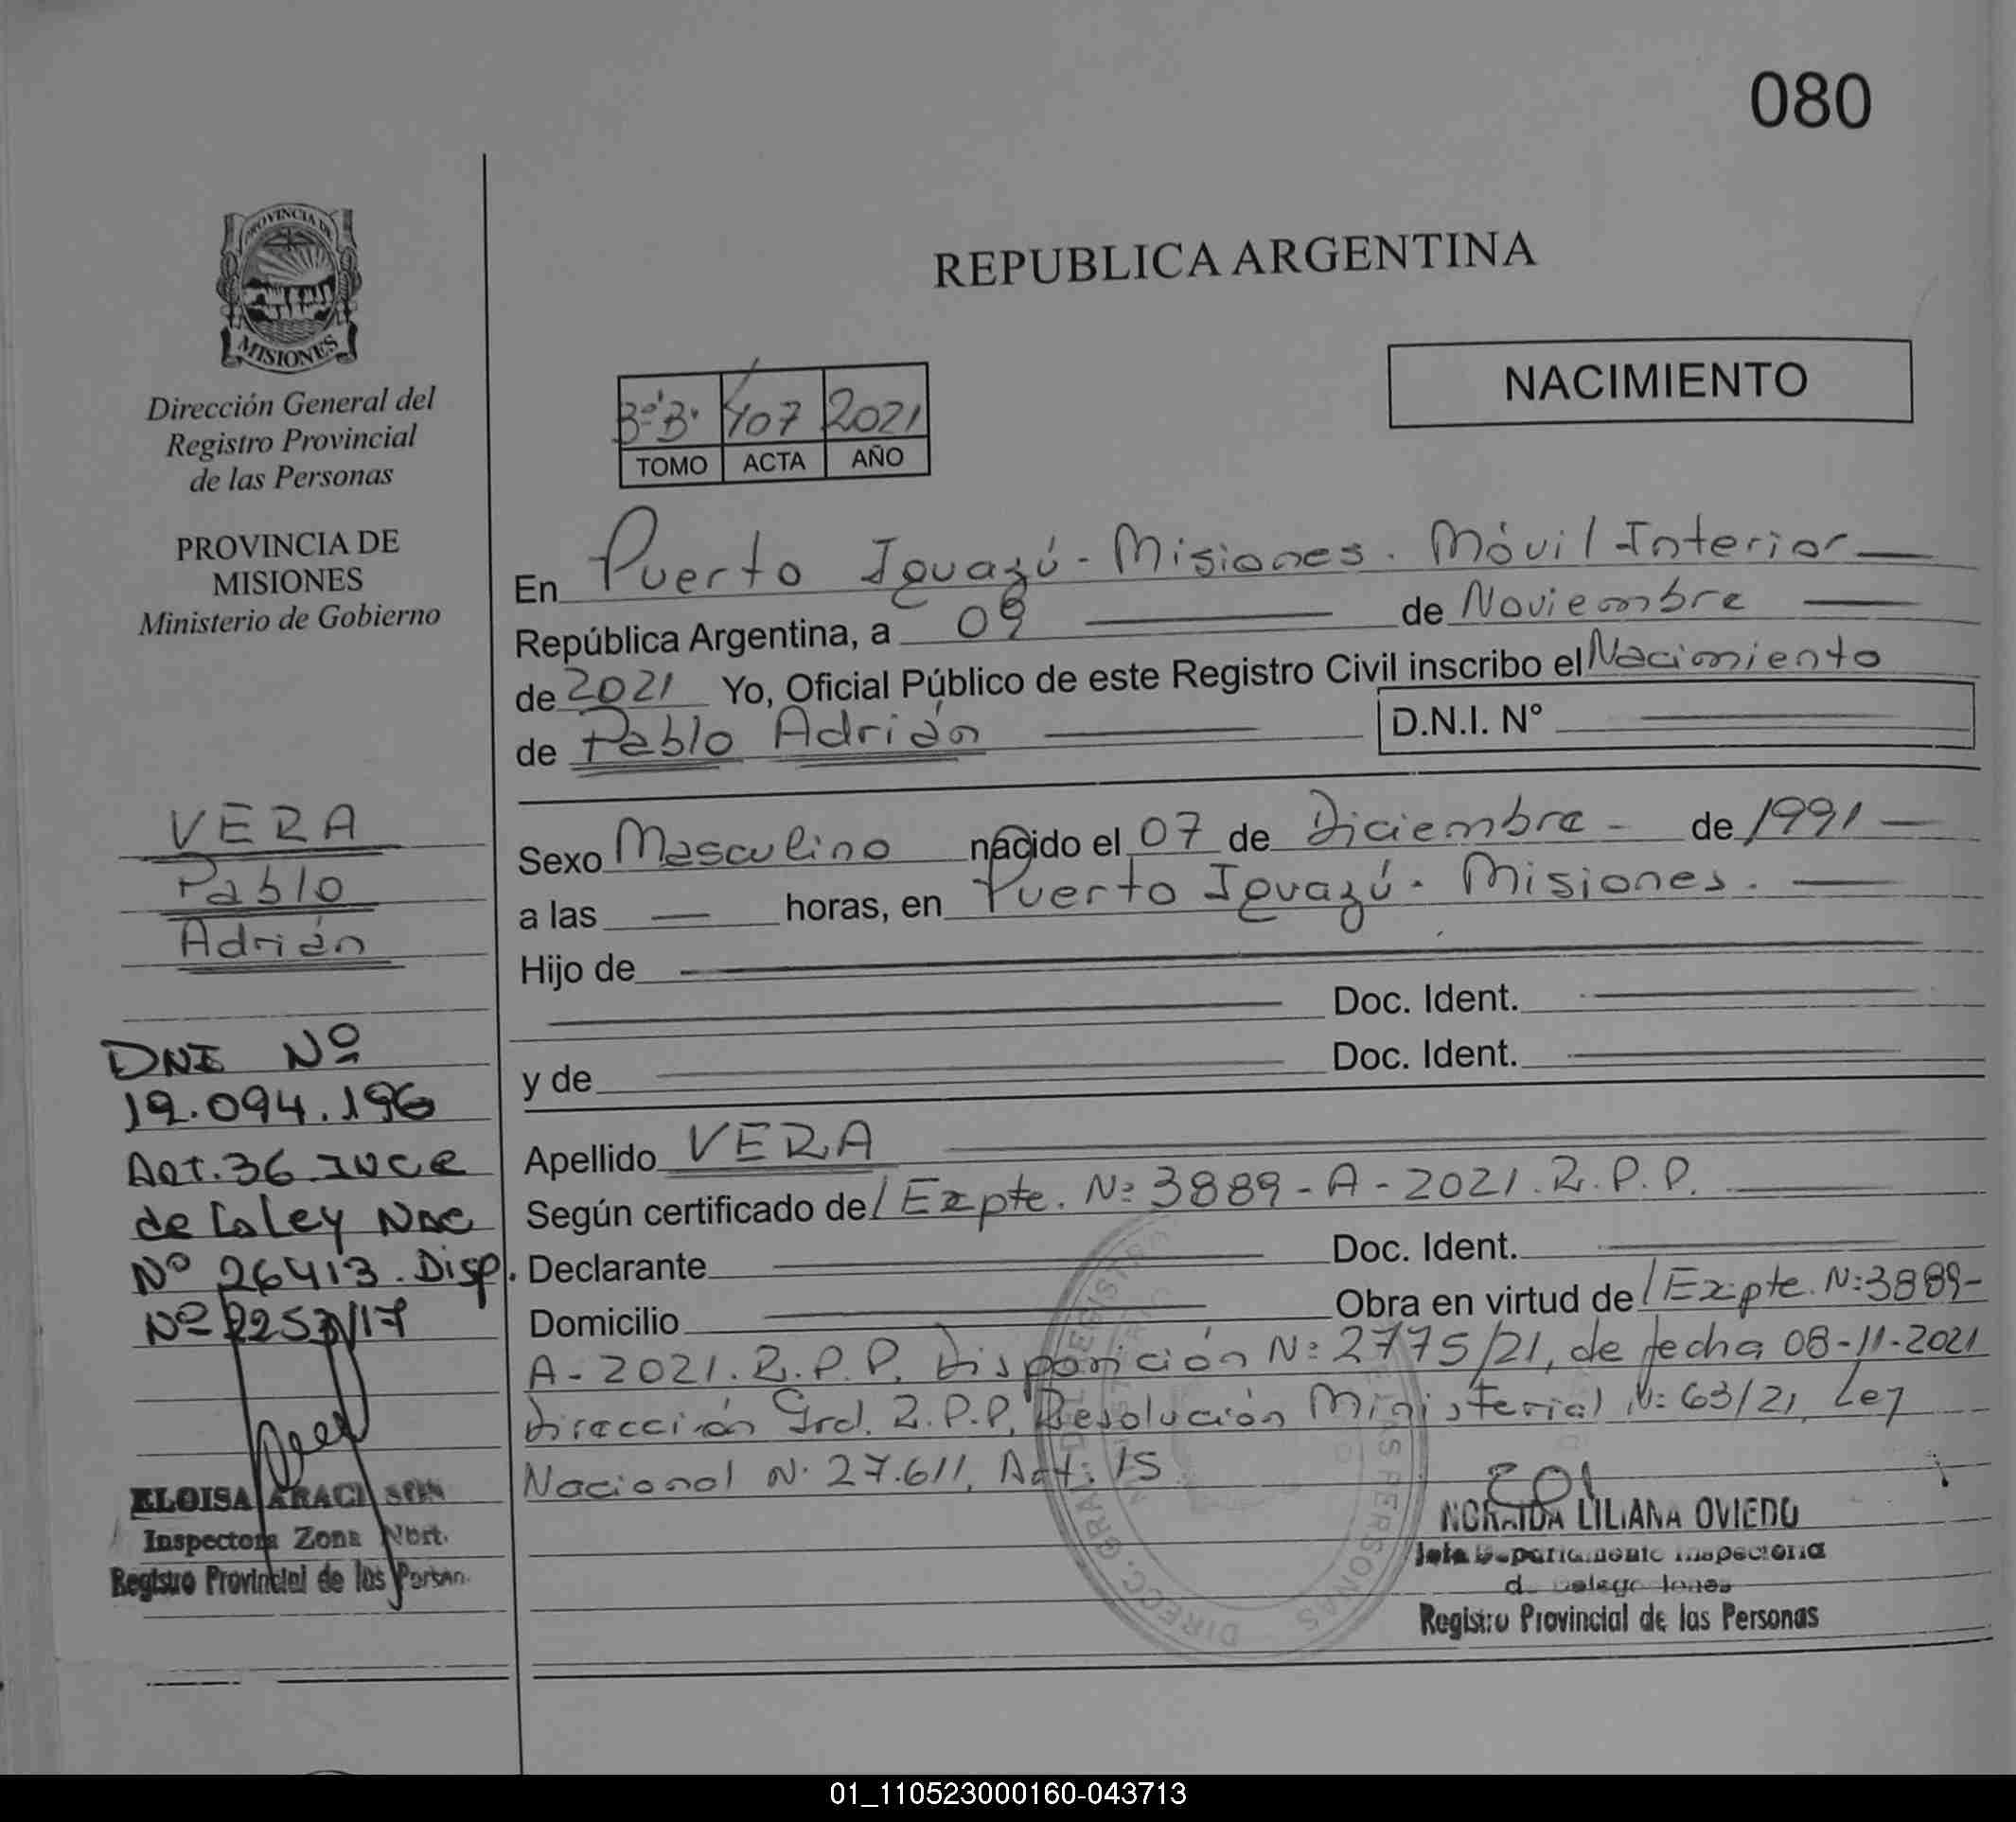 080
PROVINCIA DE
MISIONES
Dirección General del
Registro Provincial
de las Personas
PROVINCIA DE
MISIONES
Ministerio de Gobierno
VERA
Pablo
Adrián
DNI Nº
19.094.196
Art. 36 Ince
de la Ley Nac
Nº 26413. Disp.
Nº 2257/17
ELOISA ARACI
Inspectora Zona Nort.
Registro Provincial de las Person.
REPUBLICA ARGENTINA
NACIMIENTO
3º"B" 407 2021
TOMO ACTA AÑO
En Puerto Iguazú - Misiones. Móvil Interior
República Argentina, a 09 de Noviembre
de 2021 Yo, Oficial Público de este Registro Civil inscribo el Nacimiento
de Pablo Adrián D.N.I. N°
Sexo Masculino nacido el 07 de Diciembre - de 1991
a las horas, en Puerto Iguazú - Misiones.
Hijo de
Doc. Ident.
y de Doc. Ident.
Apellido VERA
Según certificado de/ Expte. Nº 3889-A-2021. R.P.P.
Declarante Doc. Ident.
Domicilio Obra en virtud de/ Expte. Nº 3889-
A-2021. R.P.P. Disposición Nº 2775/21, de fecha 08-11-2021
Dirección Gral. R.P.P, Resolución Ministerial Nº 63/21, Ley
Nacional Nº 27.611, Art. 15
NORAIDA LILIANA OVIEDO
Jefa Departamento Inspectoria
de Delegaciones
Registro Provincial de las Personas
DIREC. GRAL DEL REGISTRO
LAS PERSONAS
01_110523000160-043713